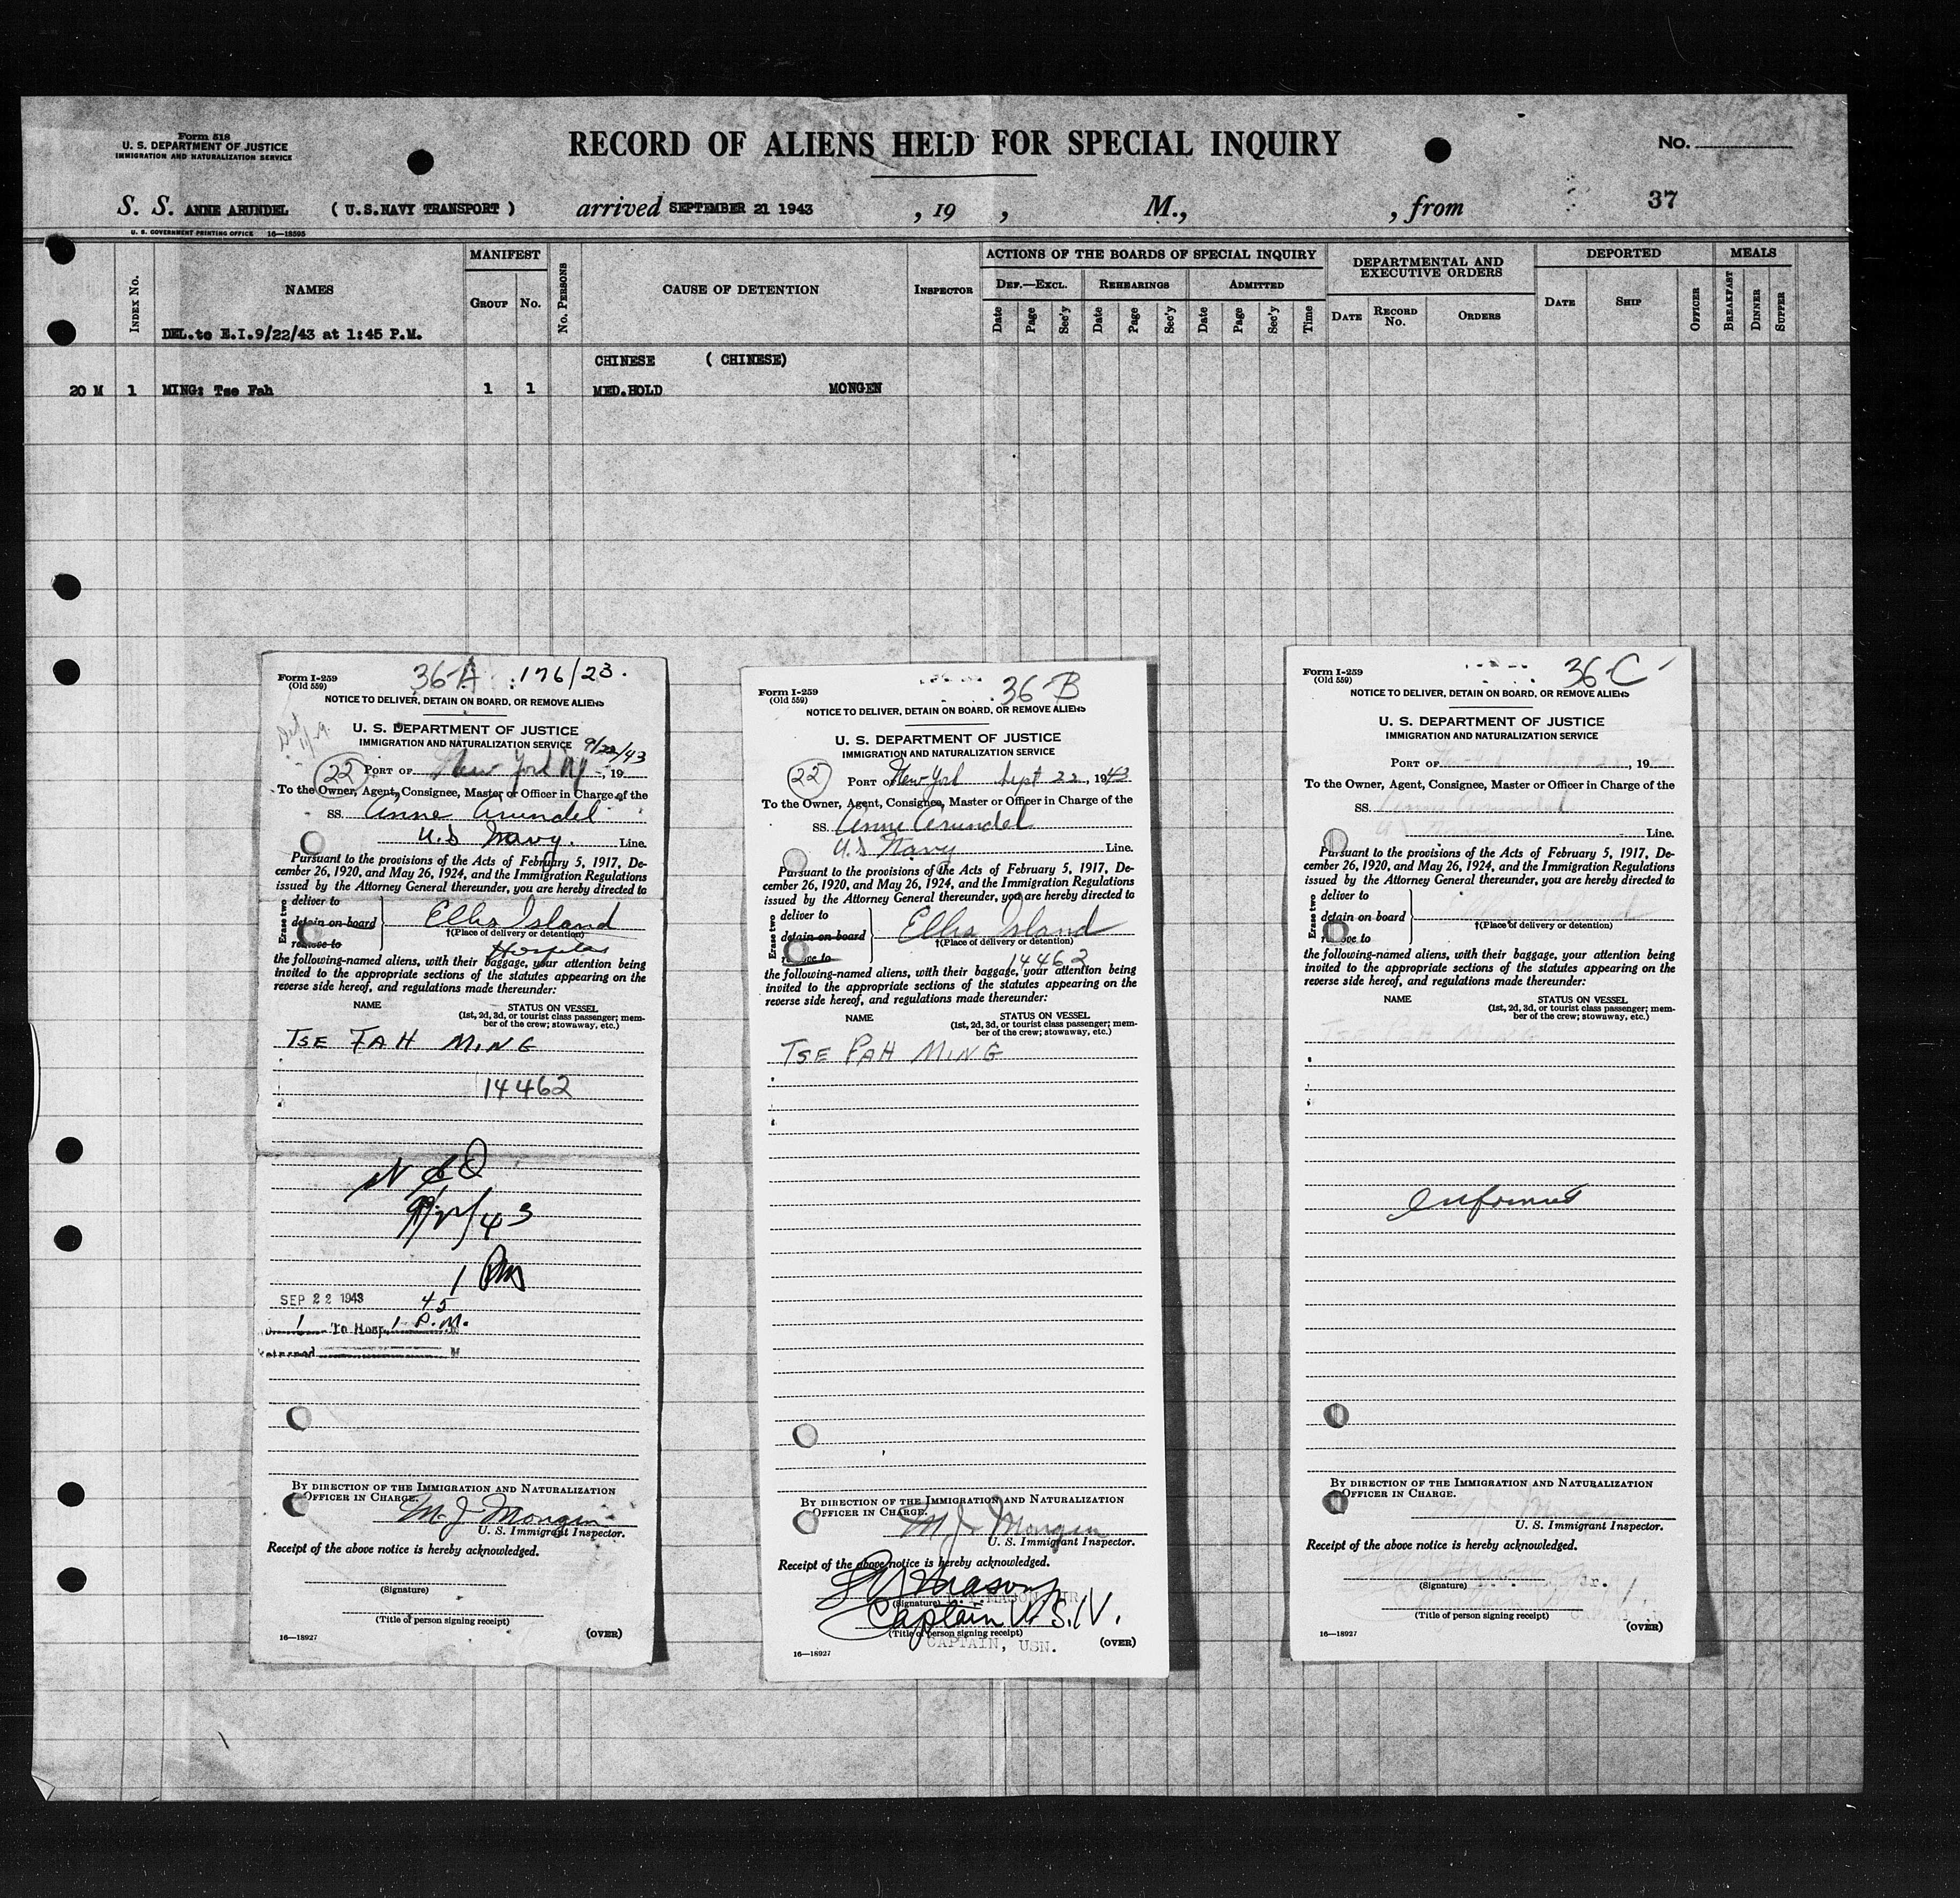 Form 518
U. S. DEPARTMENT OF JUSTICE
IMMIGRATION AND NATURALIZATION SERVICE
RECORD OF ALIENS HELD FOR SPECIAL INQUIRY
No.
S. S. ANNE ARUNDEL ( U.S.NAVY TRANSPORT ) arrived SEPTEMBER 21 1943 , 19 , M., , from 37
U. S. GOVERNMENT PRINTING OFFICE 16—18595
INDEX No.
NAMES
MANIFEST
GROUP
No.
No. PERSONS
CAUSE OF DETENTION
INSPECTOR
ACTIONS OF THE BOARDS OF SPECIAL INQUIRY
DEF.—EXCL.
REHEARINGS
ADMITTED
Date Page Sec'y Date Page Sec'y Date Page Sec'y Time
DEPARTMENTAL AND EXECUTIVE ORDERS
DATE RECORD No. ORDERS
DEPORTED
DATE SHIP OFFICER
MEALS
BREAKFAST DINNER SUPPER
DEL.to E.I.9/22/43 at 1:45 P.M.
CHINESE ( CHINESE)
20 M 1 MING: Tse Fah 1 1 MED.HOLD MONGEN
Form I-259
(Old 559)
36-A 176/23.
NOTICE TO DELIVER, DETAIN ON BOARD, OR REMOVE ALIENS
U. S. DEPARTMENT OF JUSTICE
IMMIGRATION AND NATURALIZATION SERVICE 9/22/43
22 PORT OF New York NY , 19
To the Owner, Agent, Consignee, Master or Officer in Charge of the
SS. Anne Arundel
U.S Navy. Line.
Pursuant to the provisions of the Acts of February 5, 1917, De-
cember 26, 1920, and May 26, 1924, and the Immigration Regulations
issued by the Attorney General thereunder, you are hereby directed to
Erase two
deliver to
detain on board
remove to
Ellis Island
†(Place of delivery or detention)
the following-named aliens, with their baggage, your attention being
invited to the appropriate sections of the statutes appearing on the
reverse side hereof, and regulations made thereunder:
NAME STATUS ON VESSEL
(1st, 2d, 3d, or tourist class passenger; mem-
ber of the crew; stowaway, etc.)
TSE FAH MING
14462
9/22/43
1 PM
SEP 22 1943 45
1 To Hosp. 1 P.M.
BY DIRECTION OF THE IMMIGRATION AND NATURALIZATION
OFFICER IN CHARGE.
M. J. Mongen
U. S. Immigrant Inspector.
Receipt of the above notice is hereby acknowledged.
(Signature)
(Title of person signing receipt)
16—18927 (OVER)
Form I-259
(Old 559)
36-B
NOTICE TO DELIVER, DETAIN ON BOARD, OR REMOVE ALIENS
U. S. DEPARTMENT OF JUSTICE
IMMIGRATION AND NATURALIZATION SERVICE
22 PORT OF New York Sept 22, 1943
To the Owner, Agent, Consignee, Master or Officer in Charge of the
SS. Anne Arundel
U.S Navy Line.
Pursuant to the provisions of the Acts of February 5, 1917, De-
cember 26, 1920, and May 26, 1924, and the Immigration Regulations
issued by the Attorney General thereunder, you are hereby directed to
Erase two
deliver to
detain on board
remove to
Ellis Island
†(Place of delivery or detention)
14462
the following-named aliens, with their baggage, your attention being
invited to the appropriate sections of the statutes appearing on the
reverse side hereof, and regulations made thereunder:
NAME STATUS ON VESSEL
(1st, 2d, 3d, or tourist class passenger; mem-
ber of the crew; stowaway, etc.)
TSE FAH MING
BY DIRECTION OF THE IMMIGRATION AND NATURALIZATION
OFFICER IN CHARGE.
M J Mongen
U. S. Immigrant Inspector.
Receipt of the above notice is hereby acknowledged.
Mason
(Signature) MASON JR
Captain U.S.N.
(Title of person signing receipt)
CAPTAIN, USN.
16—18927 (OVER)
Form I-259
(Old 559)
36-C
NOTICE TO DELIVER, DETAIN ON BOARD, OR REMOVE ALIENS
U. S. DEPARTMENT OF JUSTICE
IMMIGRATION AND NATURALIZATION SERVICE
PORT OF , 19
To the Owner, Agent, Consignee, Master or Officer in Charge of the
SS. Anne Arundel
Navy Line.
Pursuant to the provisions of the Acts of February 5, 1917, De-
cember 26, 1920, and May 26, 1924, and the Immigration Regulations
issued by the Attorney General thereunder, you are hereby directed to
Erase two
deliver to
detain on board
remove to
†(Place of delivery or detention)
the following-named aliens, with their baggage, your attention being
invited to the appropriate sections of the statutes appearing on the
reverse side hereof, and regulations made thereunder:
NAME STATUS ON VESSEL
(1st, 2d, 3d, or tourist class passenger; mem-
ber of the crew; stowaway, etc.)
BY DIRECTION OF THE IMMIGRATION AND NATURALIZATION
OFFICER IN CHARGE.
U. S. Immigrant Inspector.
Receipt of the above notice is hereby acknowledged.
(Signature) Jr.
(Title of person signing receipt)
16—18927 (OVER)